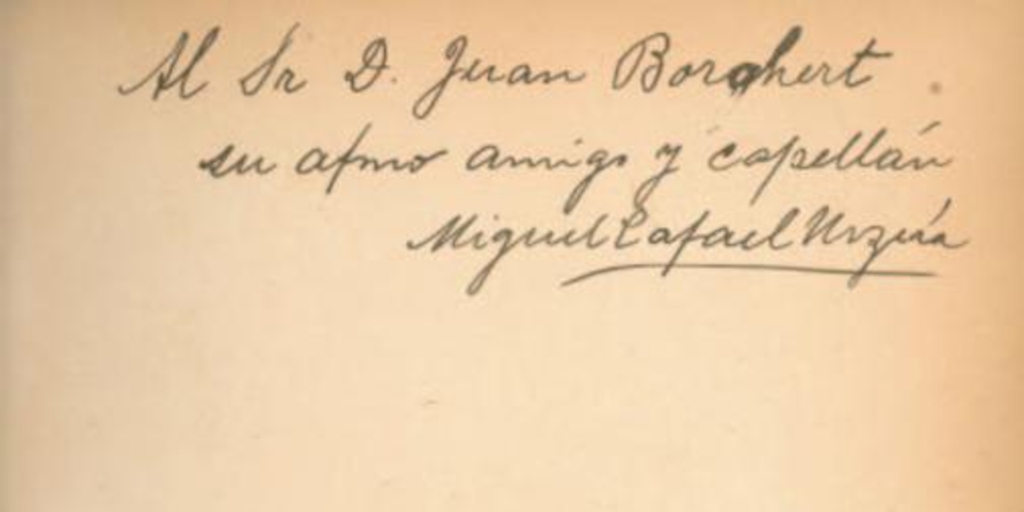 Al Sr D. Juan Borchert
su afmo amigo y capellán
Miguel Rafael Urzúa